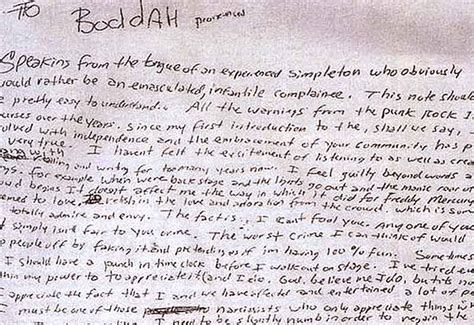 To BoddAH pronounced
Speaking from the tongue of an experienced simpleton who obviously
would rather be an emasculated, infantile complainee. This note should
be pretty easy to understand. All the warnings from the punk Rock 101
courses over the years, since my first introduction to the, shall we say,
involved with independence and the embracement of your community has p
very true. I havent felt the excitement of listening to as well as crea
with and writing for too many years now. I feel guilty beyond words a
for example when were backstage and the lights go out and the manic roar
begins It doesnt affect me the way in which it did for Freddy Mercury
seemed to love, relish in the love and adoration from the crowd. which is som
totally admire and envy. The fact is, I cant fool you. Any one of you.
It simply isnt fair to you or me. The worst crime I can think of would
people off by faking it and pretending as if im having 100% fun. Sometimes
I should have a punch in time clock before I walk out on stage. I've tried e
within my power to to appreciate it (and I do. God, believe me I do, but its no
I appreciate the fact that I and we have affected and entertained a lot of pe
I must be one of those narcissists who only appreciate things w
I need to be slightly numb in order to regain the